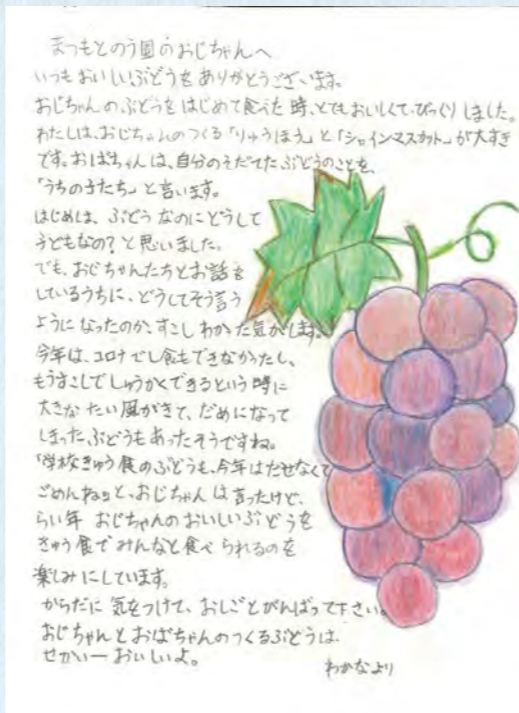 まつもとのう園のおじちゃんへ
いつもおいしいぶどうをありがとうございます。
おじちゃんのぶどうをはじめて食べた時、とてもおいしくてびっくりしました。
わたしは、おじちゃんのつくる「りゅうほう」と「シャインマスカット」が大すき
です。おばちゃんは、自分のそだてたぶどうのことを、
「うちの子たち」と言います。
はじめは、ぶどうなのにどうして
子どもなの?と思いました。
でも、おじちゃんたちとお話を
しているうちに、どうしてそう言う
ようになったのか、すこしわかった気がします。
今年は、コロナでし食もできなかったし、
もうすこしでしゅうかくできるという時に
大きなたい風がきて、だめになって
しまったぶどうもあったそうですね。
「学校きゅう食のぶどうも、今年はだせなくて
ごめんね」と、おじちゃんは言ったけど、
らい年おじちゃんのおいしいぶどうを
きゅう食でみんなと食べられるのを
楽しみにしています。
からだに気をつけて、おしごとがんばって下さい。
おじちゃんとおばちゃんのつくるぶどうは、
せかい一おいしいよ。
わかなより